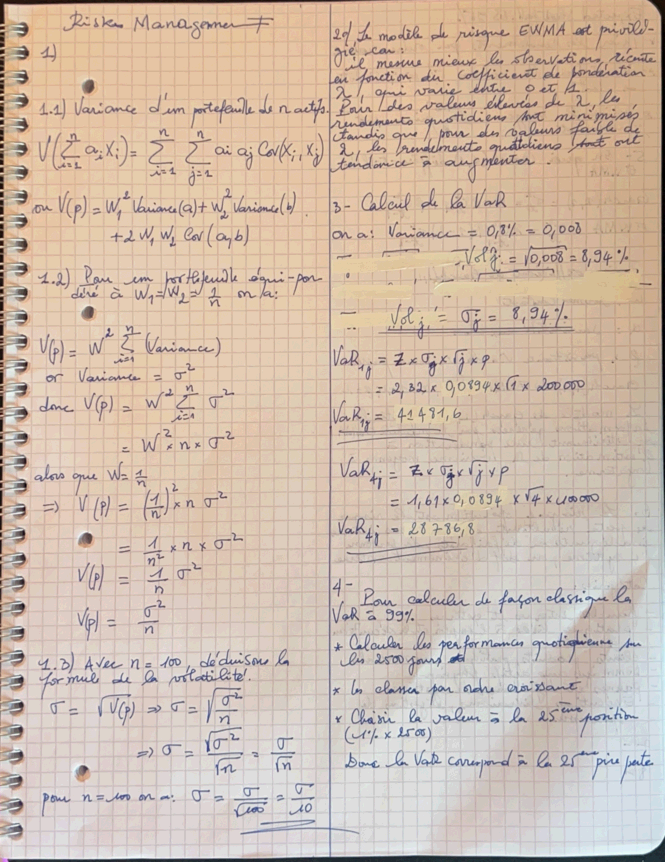 Risks Management
1)
1.1) Variance d'un portefeuille de n actifs.
V(∑_{i=1}^{n} aᵢXᵢ) = ∑_{i=1}^{n} ∑_{j=1}^{n} ai aj Cov(Xᵢ, Xⱼ)
ou V(p) = W₁² Variance(a) + W₂² Variance(b)
+ 2 W₁ W₂ Cov(a,b)
1.2) Pour un portefeuille équi-pon-
déré à W₁ = W₂ = 1/n on a:
V(p) = W² ∑_{i=1}^{n} (Variance)
or Variance = σ²
donc V(p) = W² ∑_{i=1}^{n} σ²
= W² × n × σ²
alors que W = 1/n
=> V(p) = (1/n)² × n σ²
= 1/n² × n × σ²
V(p) = 1/n σ²
V(p) = σ²/n
1.3) Avec n = 100, déduisons la
formule de la volatilité.
σ = √V(p) => σ = √(σ²/n)
=> σ = √σ²/√n = σ/√n
pour n = 100 on a: σ = σ/√100 = σ/10
2°/ Le modèle de risque EWMA est privilé-
gié car:
il mesure mieux les observations récente
en fonction du coefficient de pondération
λ, qui varie entre 0 et 1.
Pour des valeurs élevées de λ, les
rendements quotidiens sont minimisés
tandis que, pour des valeurs faible de
λ, les rendements quotidiens ont
tendance à augmenter.
3- Calcul de la VaR
on a: Variance = 0,8% = 0,008
- Volj = √0,008 = 8,94%
- Volj = σj = 8,94%
VaR₁ⱼ = Z × σj × √j × p
= 2,32 × 0,0894 × √1 × 200000
VaR₁ⱼ = 41481,6
VaR₄ⱼ = Z × σj × √j × p
= 1,61 × 0,0894 × √4 × 100000
VaR₄ⱼ = 28786,8
4-
Pour calculer de façon classique la
VaR à 99%
* Calculer les performances quotidienne sur
les 2500 jours
* les classer par ordre croissant
* Choisir la valeur à la 25ème position
(1% × 2500)
Donc la VaR correspond à la 25ème pire perte